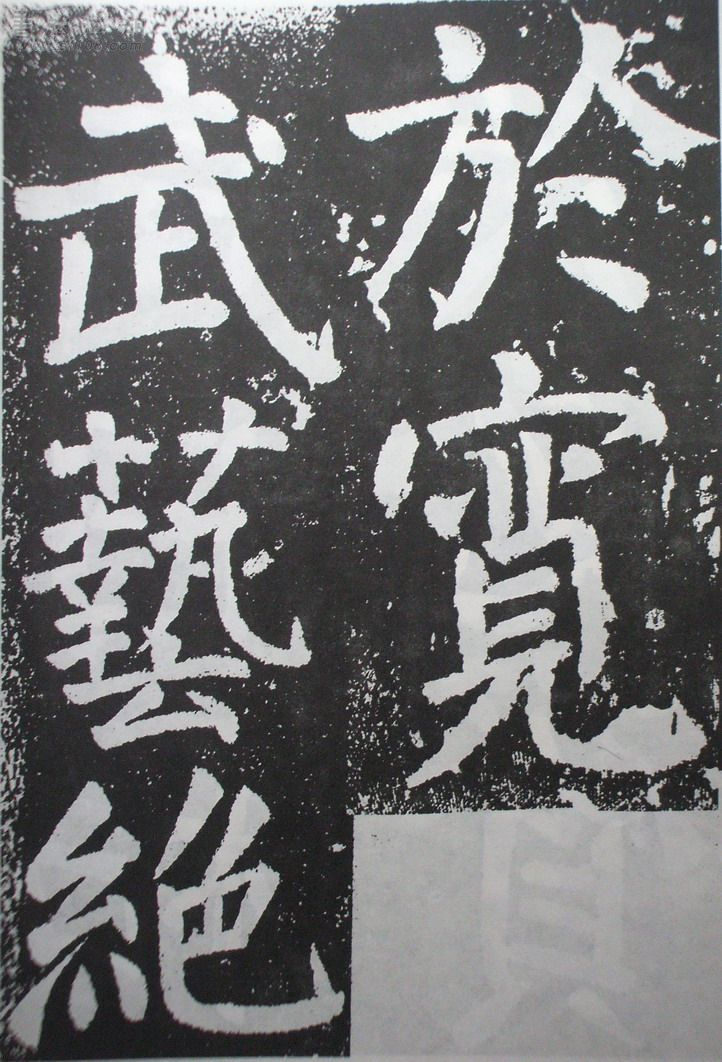 於寬
武藝絕